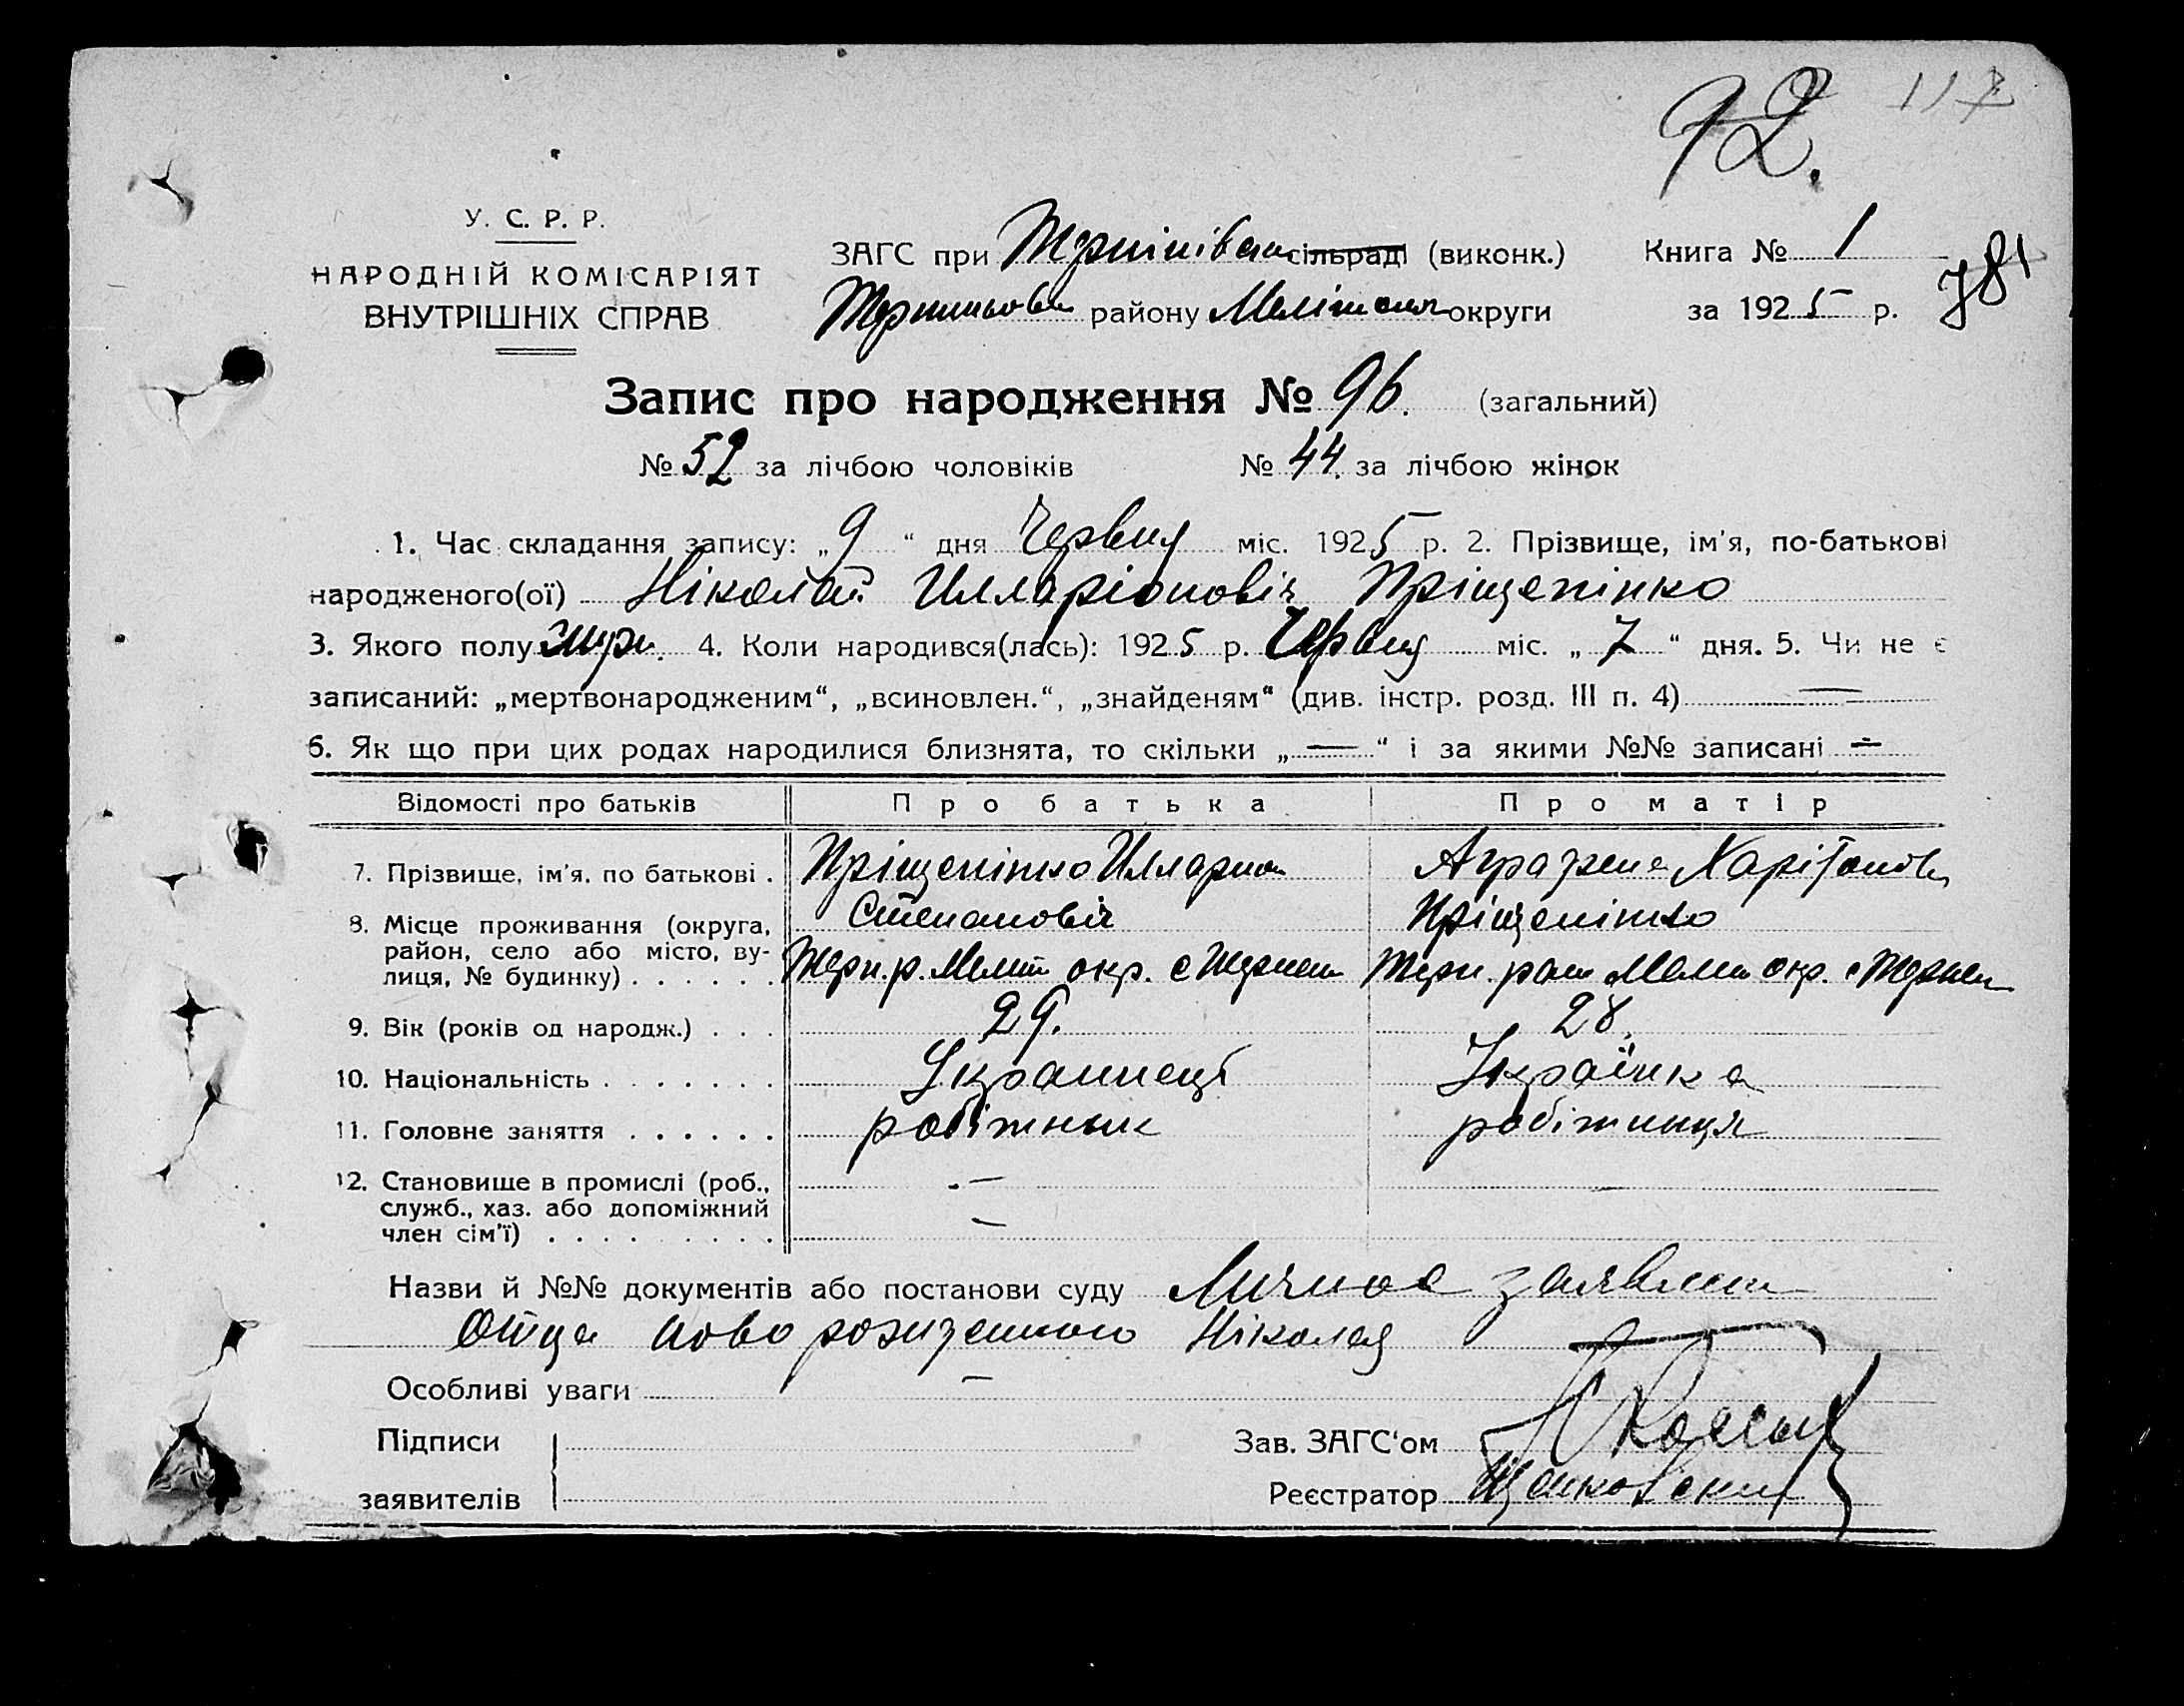 92. 117
У. С. Р. Р.
НАРОДНІЙ КОМІСАРІЯТ
ВНУТРІШНІХ СПРАВ
ЗАГС при сільраді (виконк.) Книга № 1
району Меліт округи за 1925 р. 781
Запис про народження № 96. (загальний)
№ 52 за лічбою чоловіків № 44. за лічбою жінок
1. Час складання запису: „9“ дня Червня міс. 1925 р. 2. Прізвище, ім'я, по-батькові
народженого(ої) Ніколай Илларіоновіч Пріщепінко
3. Якого полу муж. 4. Коли народився(лась): 1925 р. Червня міс. „7“ дня. 5. Чи не є
записаний: „мертвонародженим“, „всиновлен.“, „знайденям“ (див. інстр. розд. III п. 4) —
6. Як що при цих родах народилися близнята, то скільки „—“ і за якими №№ записані —
Відомості про батьків Про батька Про матір
7. Прізвище, ім'я, по батькові . Пріщепінко Илларион Аграфена Харітонов
8. Місце проживання (округа, Степановіч Пріщепінко
район, село або місто, ву-
лиця, № будинку) . . . . . . Терн. р. Мелит окр. с Терн. Мели окр. с
9. Вік (років од народж.) . . . 29. 28.
10. Національність . . . . . . . Украинець Українка
11. Головне заняття . . . . . . робітнык робітниця
12. Становище в промислі (роб., —
служб., хаз. або допоміжний —
член сім'ї) . . . . . . . . .
Назви й №№ документів або постанови суду Личное заявлен
Отца новорожденного Ніколая
Особливі уваги —
Підписи Зав. ЗАГС'ом
заявителів Реєстратор